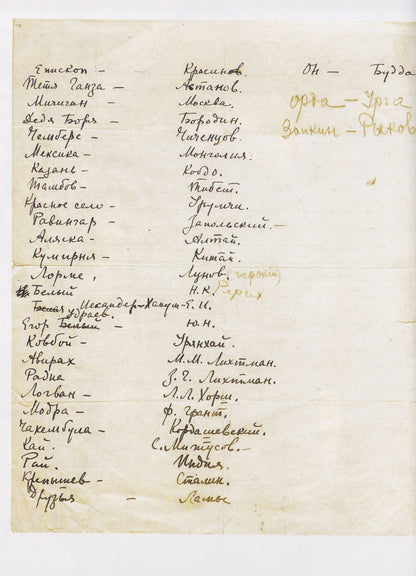 Епископ — Красинов.
Тетя Ганза — Астанов.
Мичиган — Москва.
Дядя Боря — Бородин.
Чемберс — Чиченцов.
Мексика — Монголия.
Казань — Кобдо.
Тамбов — Тибет.
Красное село — Урумчи.
Равингар — Запольский. —
Аляска — Алтай.
Кумирня — Китай.
Лорме, Лунов. (Чарский)
Белый Н.К. Рерих
Искандер-Ханум — Е.И.
Удраев.
Егор — Ю.Н.
Ковбой — Урянхай.
Авирах М.М. Лихтман.
Радна З.Г. Лихтман.
Логван — Л.Л. Хорш.
Модра — Ф. Грант.
Чахембула — Кордашевский.
Кай. С. Митусов. —
Рай. Индия.
Крепышев — Сталин.
Друзья — Ламы
Он — Будда
Орда — Урга
Заикин — Рыков